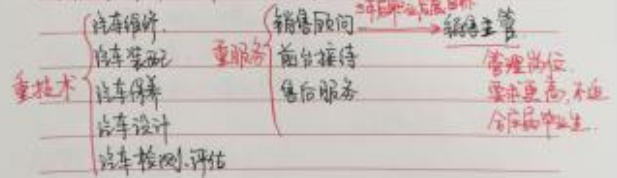 重技术
汽车维修
汽车装配
汽车保养
汽车设计
汽车检测、评估
重服务
销售顾问
前台接待
售后服务
销售主管
管理岗位
要求更高,不适
合应届毕业生